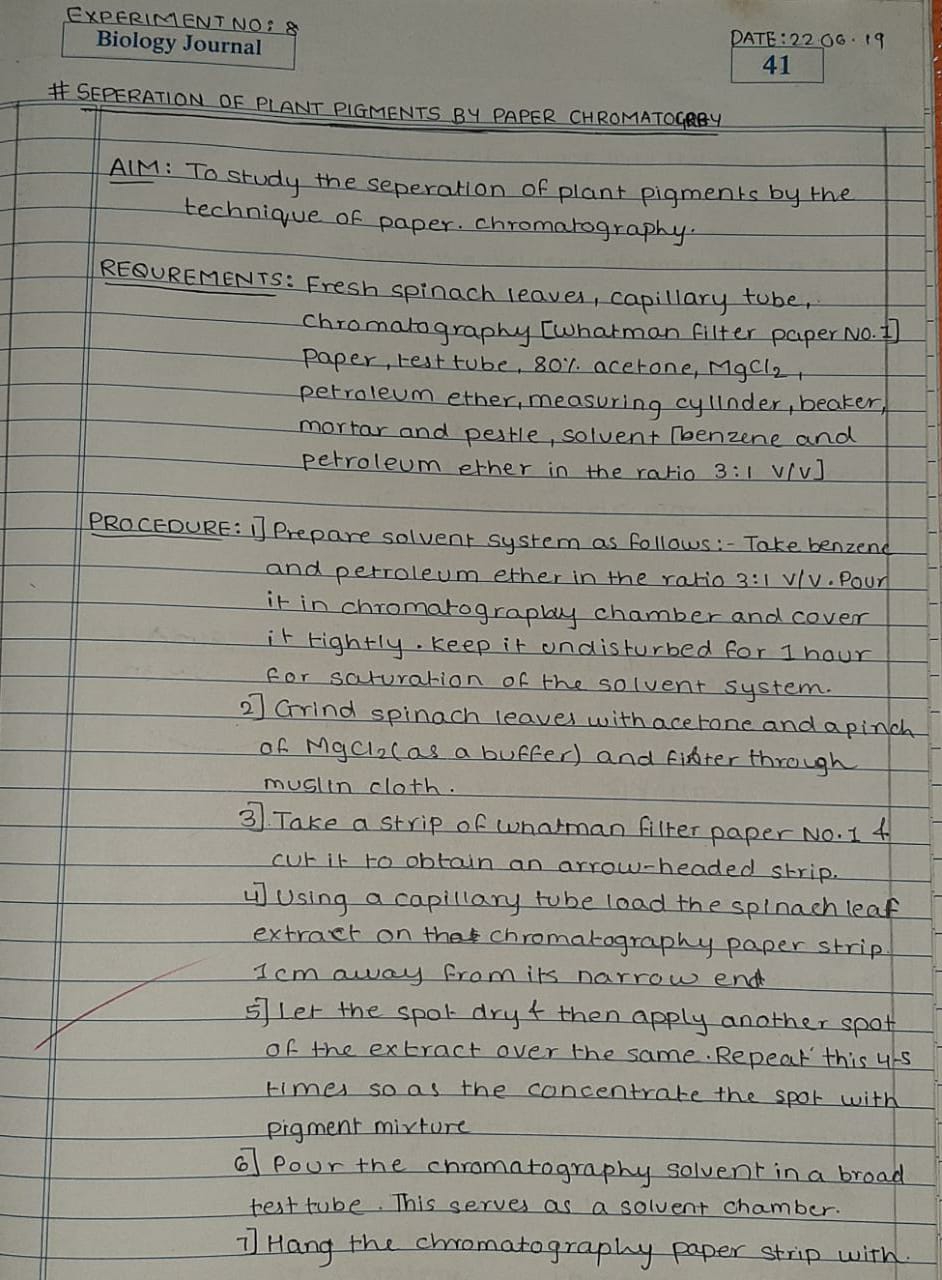 EXPERIMENT NO: 8
Biology Journal
DATE: 22 06. 19
41
# SEPERATION OF PLANT PIGMENTS BY PAPER CHROMATOGRBY
AIM: To study the seperation of plant pigments by the
technique of paper. chromatography.
REQUREMENTS: Fresh spinach leaves, capillary tube,
chromatography [Whatman filter paper NO. 1]
Paper, test tube, 80% acetone, MgCl2,
petroleum ether, measuring cylinder, beaker,
mortar and pestle, solvent [benzene and
petroleum ether in the ratio 3:1 V/V]
PROCEDURE: 1] Prepare solvent system as follows:- Take benzene
and petroleum ether in the ratio 3:1 V/V. Pour
it in chromatography chamber and cover
it tightly. Keep it undisturbed for 1 hour
for saturation of the solvent system.
2] Grind spinach leaves with acetone and a pinch
of MgCl2 (as a buffer) and filter through
muslin cloth.
3] Take a strip of whatman filter paper NO. 1 &
cut it to obtain an arrow-headed strip.
4] Using a capillary tube load the spinach leaf
extract on the chromatography paper strip
1cm away from its narrow end
5] Let the spot dry & then apply another spot
of the extract over the same. Repeat this 4-5
times so as the concentrate the spot with
pigment mixture
6] Pour the chromatography solvent in a broad
test tube. This serves as a solvent chamber.
7] Hang the chromatography paper strip with.